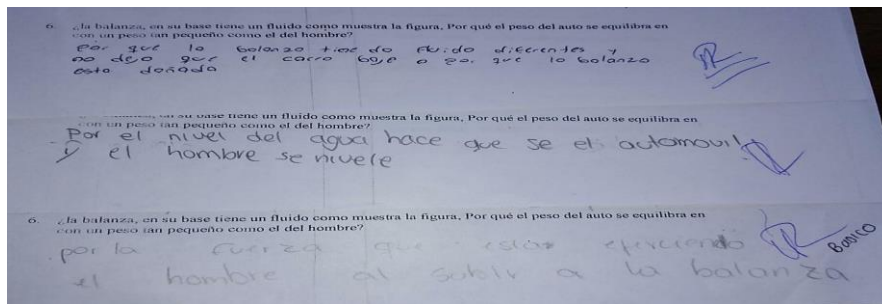 6. ¿la balanza, en su base tiene un fluido como muestra la figura, Por qué el peso del auto se equilibra en
con un peso tan pequeño como el del hombre?
Por que la balanza tiene do fluido diferentes y
no deja que el carro baje o por que la balanza
esta dañada
su base tiene un fluido como muestra la figura, Por qué el peso del auto se equilibra en
con un peso tan pequeño como el del hombre?
Por el nivel del agua hace que se el automovil
y el hombre se nivele
6. ¿la balanza, en su base tiene un fluido como muestra la figura, Por qué el peso del auto se equilibra en
con un peso tan pequeño como el del hombre?
por la fuerza que están ejerciendo
el hombre al subir a la balanza
BASICO